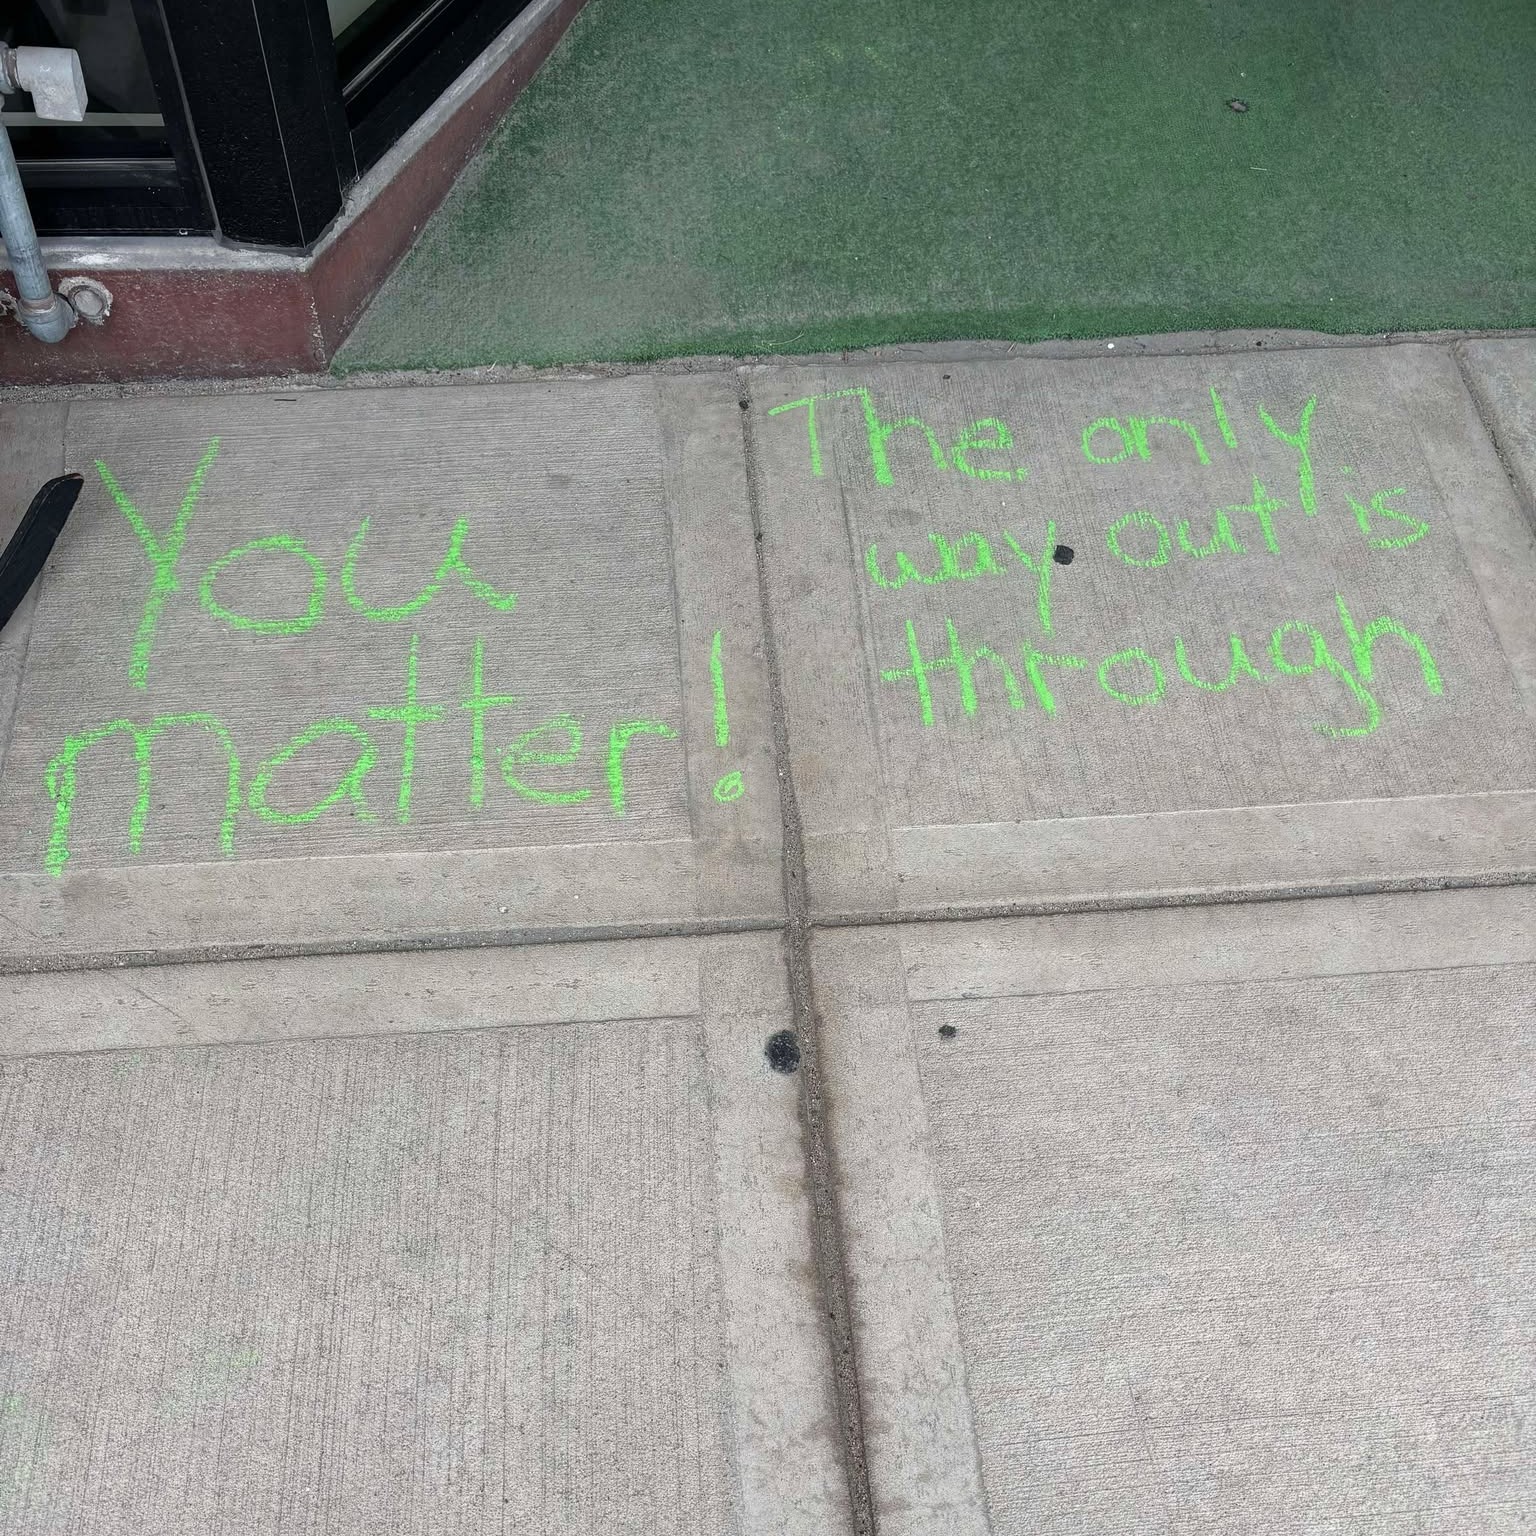 You
matter!
The only
way out is
through